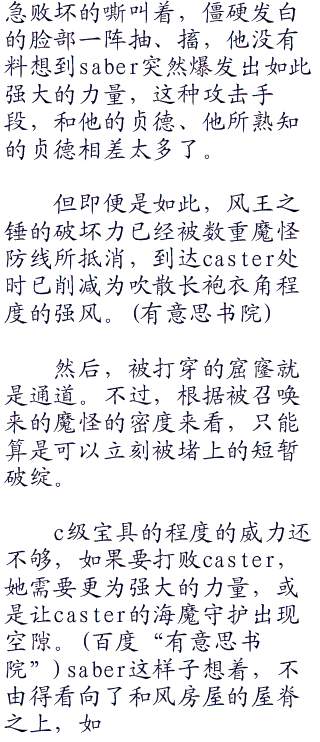 急败坏的嘶叫着，僵硬发白
的脸部一阵抽、搐，他没有
料想到saber突然爆发出如此
强大的力量，这种攻击手
段，和他的贞德、他所熟知
的贞德相差太多了。
但即便是如此，风王之
锤的破坏力已经被数重魔怪
防线所抵消，到达caster处
时已削减为吹散长袍衣角程
度的强风。(有意思书院)
然后，被打穿的窟窿就
是通道。不过，根据被召唤
来的魔怪的密度来看，只能
算是可以立刻被堵上的短暂
破绽。
c级宝具的程度的威力还
不够，如果要打败caster，
她需要更为强大的力量，或
是让caster的海魔守护出现
空隙。(百度“有意思书
院”)saber这样子想着，不
由得看向了和风房屋的屋脊
之上，如